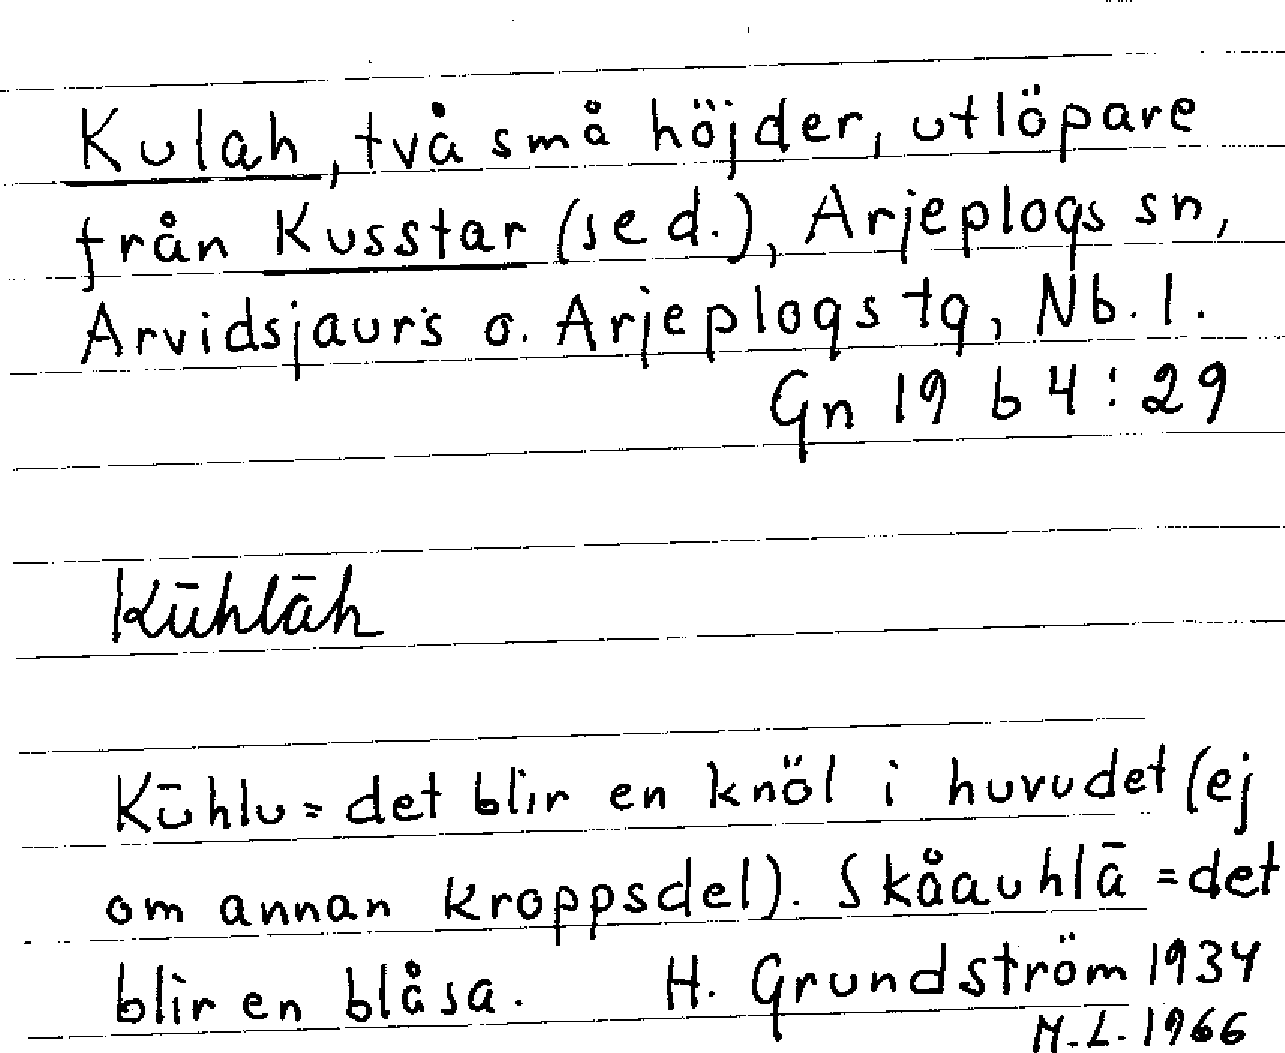 Kulah, två små höjder, utlöpare
från Kusstar (se d.), Arjeplogs sn,
Arvidsjaurs o. Arjeplogs tg, Nb. l.
Gn 19 b 4:29
Kūhlāh
Kūhlu = det blir en knöl i huvudet (ej
om annan kroppsdel). Skåauhlā = det
blir en blåsa. H. Grundström 1934
M.L. 1966